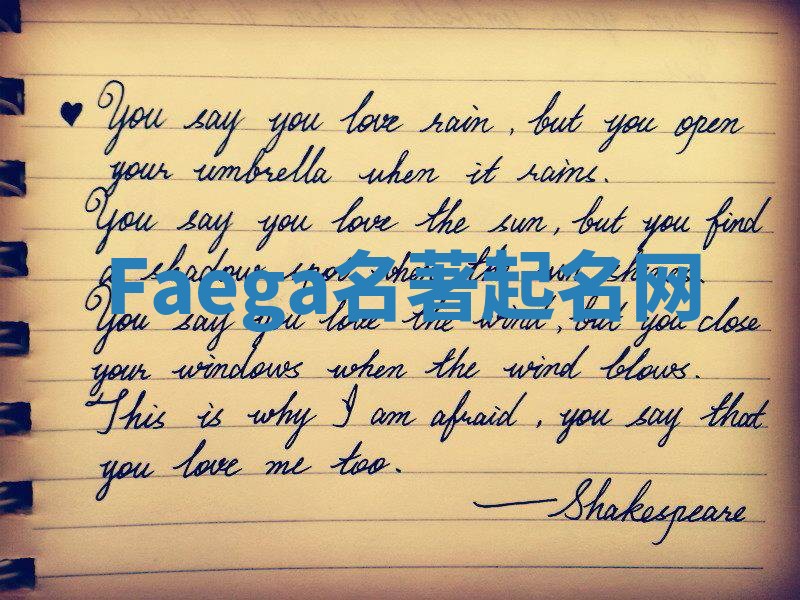 ♥ You say you love rain, but you open
your umbrella when it rains.
You say you love the sun, but you find
a shadow spot when the sun shines.
Faega名著起名网
You say you love the wind, but you close
your windows when the wind blows.
This is why I am afraid, you say that
you love me too.
—Shakespeare